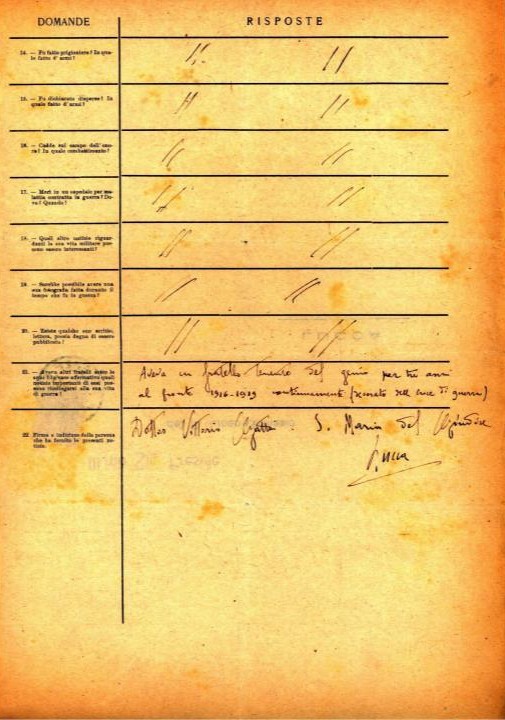 DOMANDE
RISPOSTE
14. — Fu fatto prigioniero? In qua-
le fatto d'armi?
15. — Fu dichiarato disperso? In
quale fatto d'armi?
16. — Cadde sul campo dell'ono-
re? In quale combattimento?
17. — Morì in un ospedale per ma-
lattia contratta in guerra? Do-
ve? Quando?
18. — Quali altre notizie riguar-
danti la sua vita militare pos-
sono essere interessanti?
19. — Sarebbe possibile avere una
sua fotografia fatta durante il
tempo che fu in guerra?
20. — Esiste qualche suo scritto,
lettera, poesia degno di essere
pubblicato?
21. — Aveva altri fratelli sotto le
di guerra?
Aveva un fratello Tenente del genio per tre anni
al fronte 1916-1919 continuamente (decorato della croce di guerra)
22. Firma e indirizzo della persona
che ha fornito le presenti no-
tizie.
Dottor Vittorio S. Maria del Giudice
Lucca